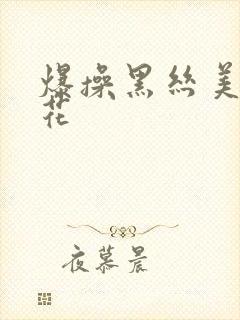 爆操黑丝美
花
夜慕晨